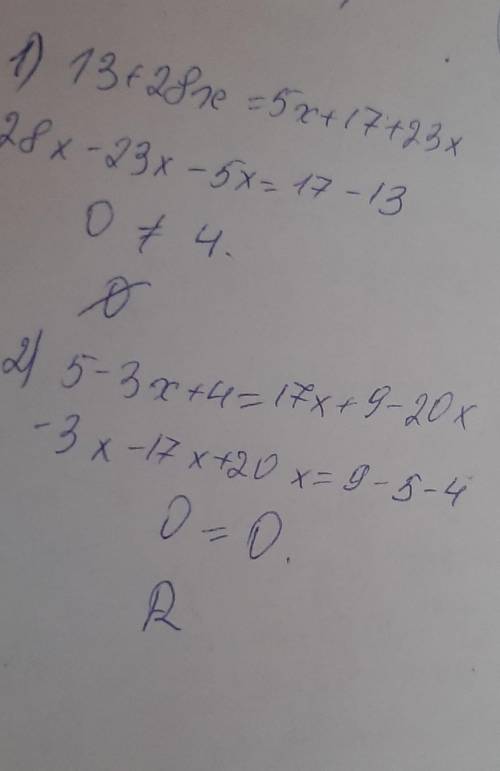 1) 13+28x = 5x+17+23x
28x-23x-5x=17-13
0 ≠ 4.
Ø
2) 5-3x+4=17x+9-20x
-3x-17x+20x=9-5-4
0 = 0.
R